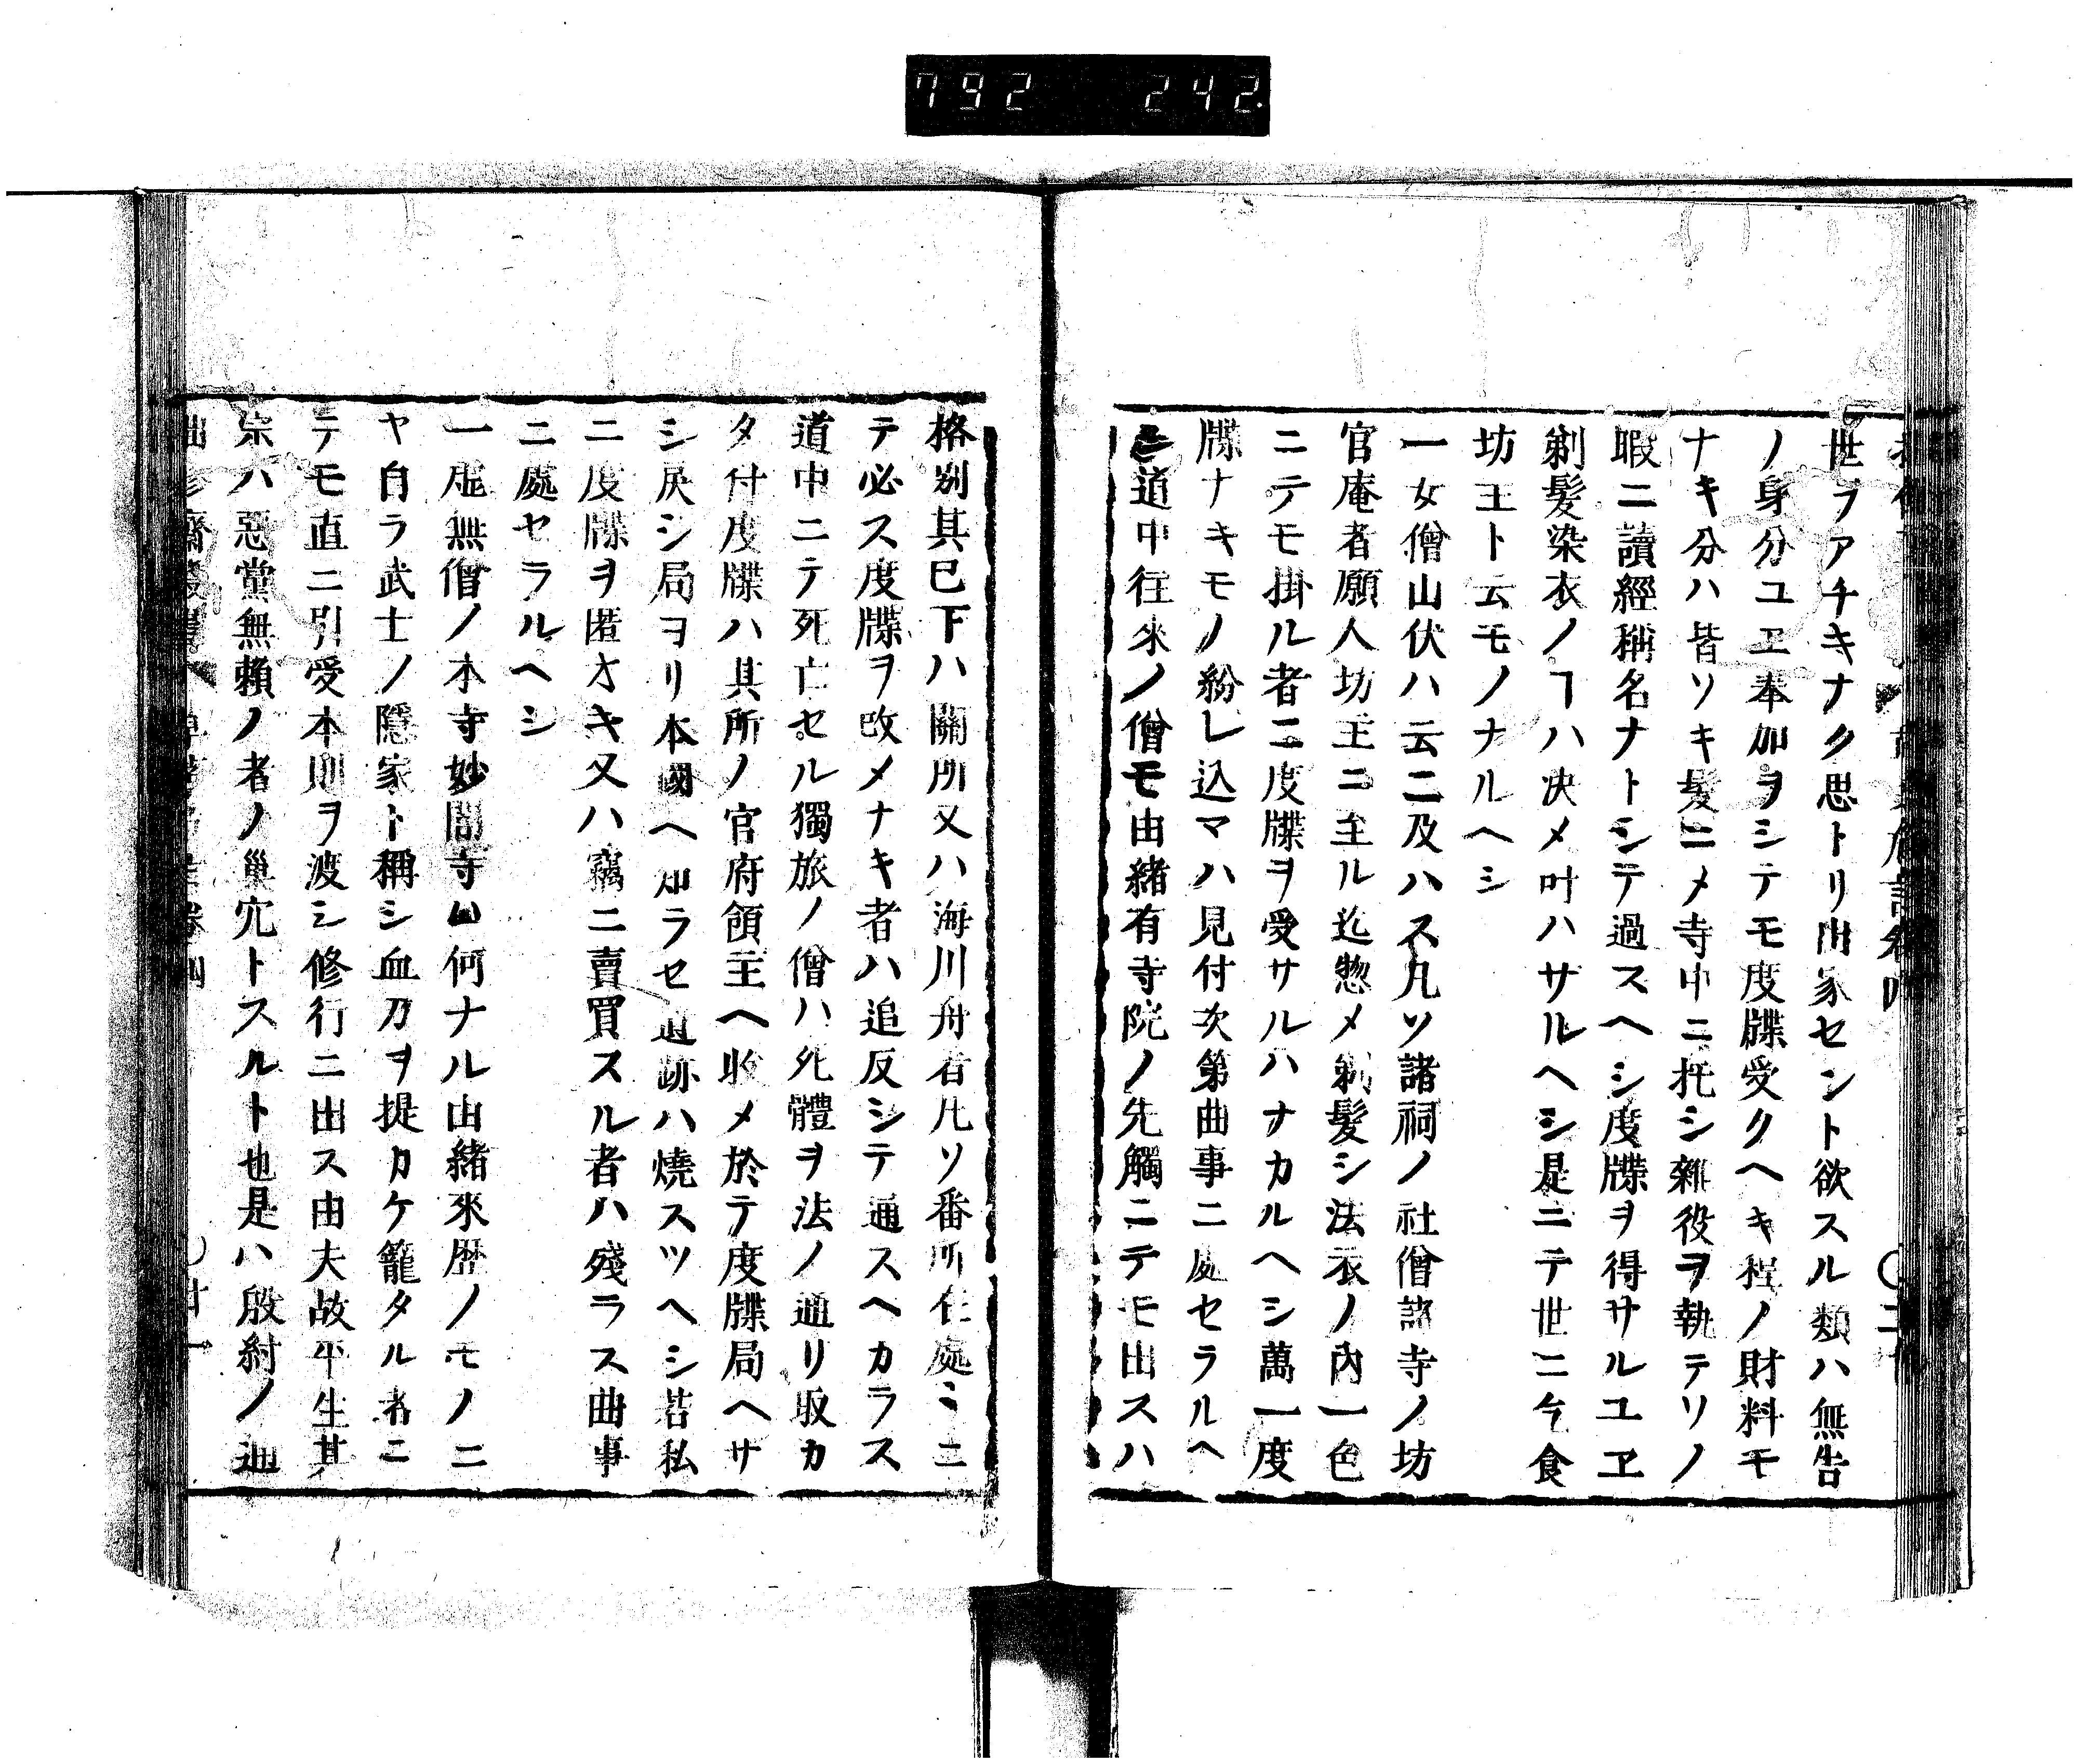 792 242.
世ヲアチキナク思トリ出家セント欲スル類ハ無告
ノ身分ユヱ奉加ヲシテモ度牒受クヘキ程ノ財料モ
ナキ分ハ皆ソキ髮ニメ寺中ニ托シ雜役ヲ執テソノ
暇ニ讀經稱名ナトシテ過スヘシ度牒ヲ得サルユヱ
剃髮染衣ノヿハ决メ叶ハサルヘシ是ニテ世ニ乞食
坊主ト云モノナルヘシ
一女僧山伏ハ云ニ及ハス凡ソ諸祠ノ社僧諸寺ノ坊
官庵者願人坊主ニ至ル迄惣メ剃髮シ法衣ノ內一色
ニテモ掛ル者ニ度牒ヲ受サルハナカルヘシ萬一度
牒ナキモノ紛レ込マハ見付次第曲事ニ處セラルヘ
シ道中往來ノ僧モ由緒有寺院ノ先觸ニテモ出スハ
格別其巳下ハ關所又ハ海川舟着凡ソ番所在處ミニ
テ必ス度牒ヲ改メナキ者ハ追反シテ通スヘカラス
道中ニテ死亡セル獨旅ノ僧ハ死體ヲ法ノ通リ取カ
タ付度牒ハ其所ノ官府領主ヘ收メ於テ度牒局ヘサ
シ戻シ局ヨリ本國ヘ知ラセ遺跡ハ燒スツヘシ若私
ニ度牒ヲ匿オキ又ハ竊ニ賣買スル者ハ殘ラス曲事
ニ處セラルヘシ
一虛無僧ノ本寺妙閣寺ハ何ナル由緒來歷ノモノニ
ヤ自ラ武士ノ隱家ト稱シ血刀ヲ提カケ籠タル者ニ
テモ直ニ引受本則ヲ渡シ修行ニ出ス由夫故平生其
宗ハ惡黨無賴ノ者ノ巢穴トスルト也是ハ殷紂ノ逋